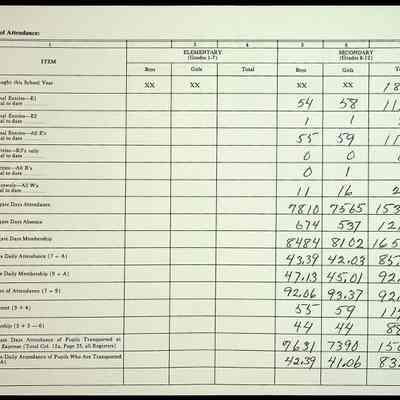 of Attendance:
1 3 4 5 6
ELEMENTARY SECONDARY
(Grades 1-7) (Grades 8-12)
ITEM Boys Girls Total Boys Girls
ught this School Year XX XX XX XX 18
nal Entries—E1
al to date 54 58 11
nal Entries—E2
al to date 1 1
nal Entries—All E's
al to date 55 59 11
ntries—R3's only
to date 0 0
ntries—All R's
to date 0 1
awals—All W's
to date 11 16 2
gate Days Attendance 7810 7565 153
gate Days Absence 674 537 121
gate Days Membership 8484 8102 165
e Daily Attendance (7 ÷ A) 43.39 42.03 85
e Daily Membership (9 ÷ A) 47.13 45.01 92
e of Attendance (7 ÷ 9) 92.06 93.37 92
ment (3 + 4) 55 59 11
rship (3 + 5 — 6) 44 44 88
ate Days Attendance of Pupils Transported at
Expense (Total Col. 13a, Page 25, all Registers) 7631 7390 150
e Daily Attendance of Pupils Who Are Transported
A) 42.39 41.06 83